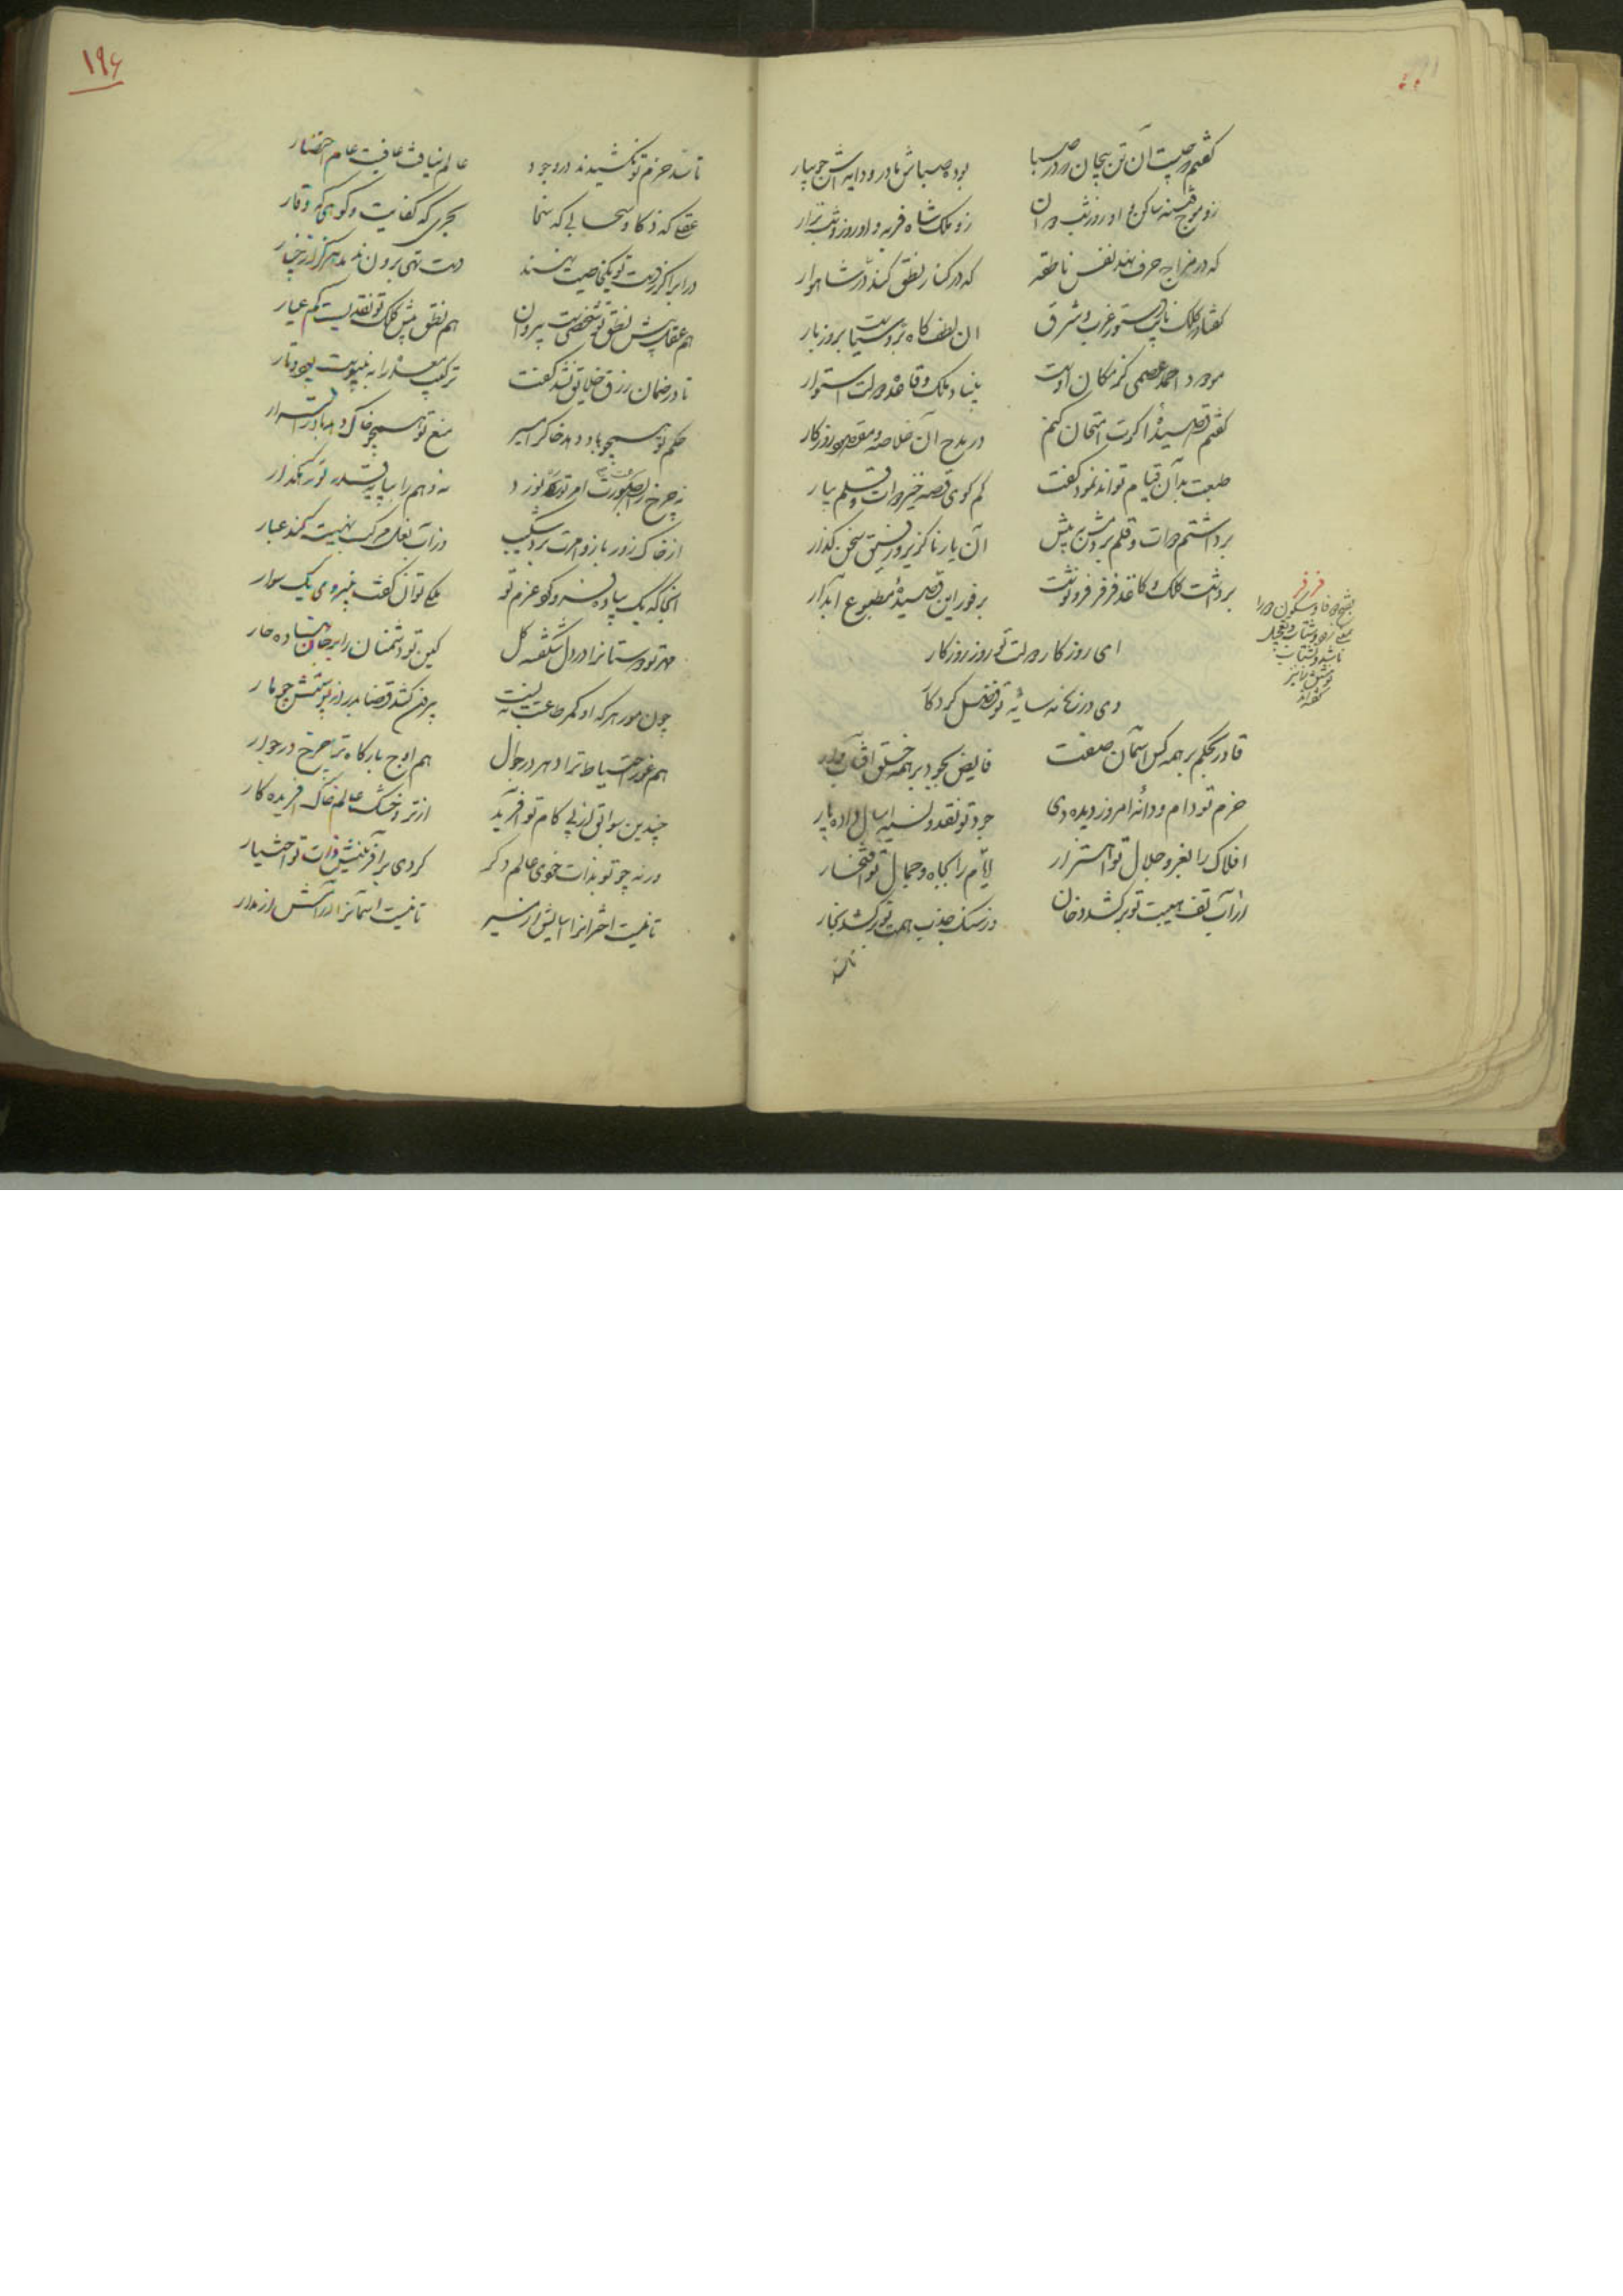 گفتم که چیست آن تن بیجان که در صبا
بوده صباش مادر و دایه‌اش جویبار
زو موج فتنه ساکن و او روز و شب دوان
زو ملک شاه فربه و او روز و شب نزار
که در مزاج حرف نهد نفس ناطقه
که در کنار نطق کند در شاهوار
گفتا که کلک نایب دستور غرب و شرق
آن لطف کاه بر و سیاست بروز بار
مودود احمد عصمی کز مکان اوست
بنیاد ملک و قاعده دولت استوار
گفتم قصیده اگرت امتحان کنم
در مدح آن خلاصه و مقصود روزگار
طبعت بدان قیام تواند نمود گفت
کم گوی قصه خیز دوات و قلم بیار
برداشتم دوات و قلم بردمش به پیش
آن یار ناگزیر و رفیق سخن گذار
برداشت کلک و کاغذ و فرفر فرو نوشت
بر فور این قصیده مطبوع آبدار
فرفر
بفتح دو فا و سکون دو را
ای روزگار دولت تو روز روزگار
وی در زمانه سایه تو فضل کردگار
قادر بحکم بر همه کس آسمان صفت
فایض بجود بر همه خلق آفتاب وار
حزم تو دام و دانه امروز دیده دی
جود تو نقد و نسیه امسال داده پار
افلاک را بعز و جلال تو اهتزار
ایام را بجاه و جمال تو افتخار
از آب تف هیبت تو برکشد دخان
وز سنگ جذب همت تو برکشد بخار
تا سد
۱۹۶
تا سد حزم تو نکشیدند در وجود
عالم نیافت عافیت عام را حصار
عقلی که ذکا و سحابی که سخا
بحری که کفایت و کوهی که وقار
در ابر اگر ز دست تو یک خاصیت نهند
دست تهی برون ندمد هرگز از چنار
هم عقل پیش نطق تو شخصی است بی روان
هم نطق پیش کلک تو نقدیست کم عیار
تا در ضمان رزق خلایق نشد کفت
ترکیب معده را نه بپیوست پود و تار
حکم تو همچو باد دهد خاک را مسیر
منع تو همچو خاک دهد باد را قرار
نه چرخ را بصورت امر تو ره نورد
نه وهم را بپایه قدر تو رهگذار
از خاک زور بازو امرت برد شکیب
وز آب نعل مرکب نهیت کند غبار
آنجا که یک پیاده فرو کوفت عزم تو
ملکی توان گرفت به نیروی یک سوار
مهر تو دوستانرا در دل شکفته گل
کین تو دشمنان را بر جان نهاده خار
چون مور هر که او کمر طاعتت نبست
بیرون کشد قضا بدر از پوستش چو مار
هم غور احتیاط ترا دهر در جوال
هم اوج بارگاه ترا چرخ در جوار
چندین سوابق از پی کام تو آفرید
از تر و خشک عالم خاک آفریده کار
ورنه چو تو بذات خودی عالم دگر
کردی بر آفرینش ذات تو اختصار
تا نیست اخترانرا آسایش از مسیر
تا نیست آسمانرا آرامش از مدار